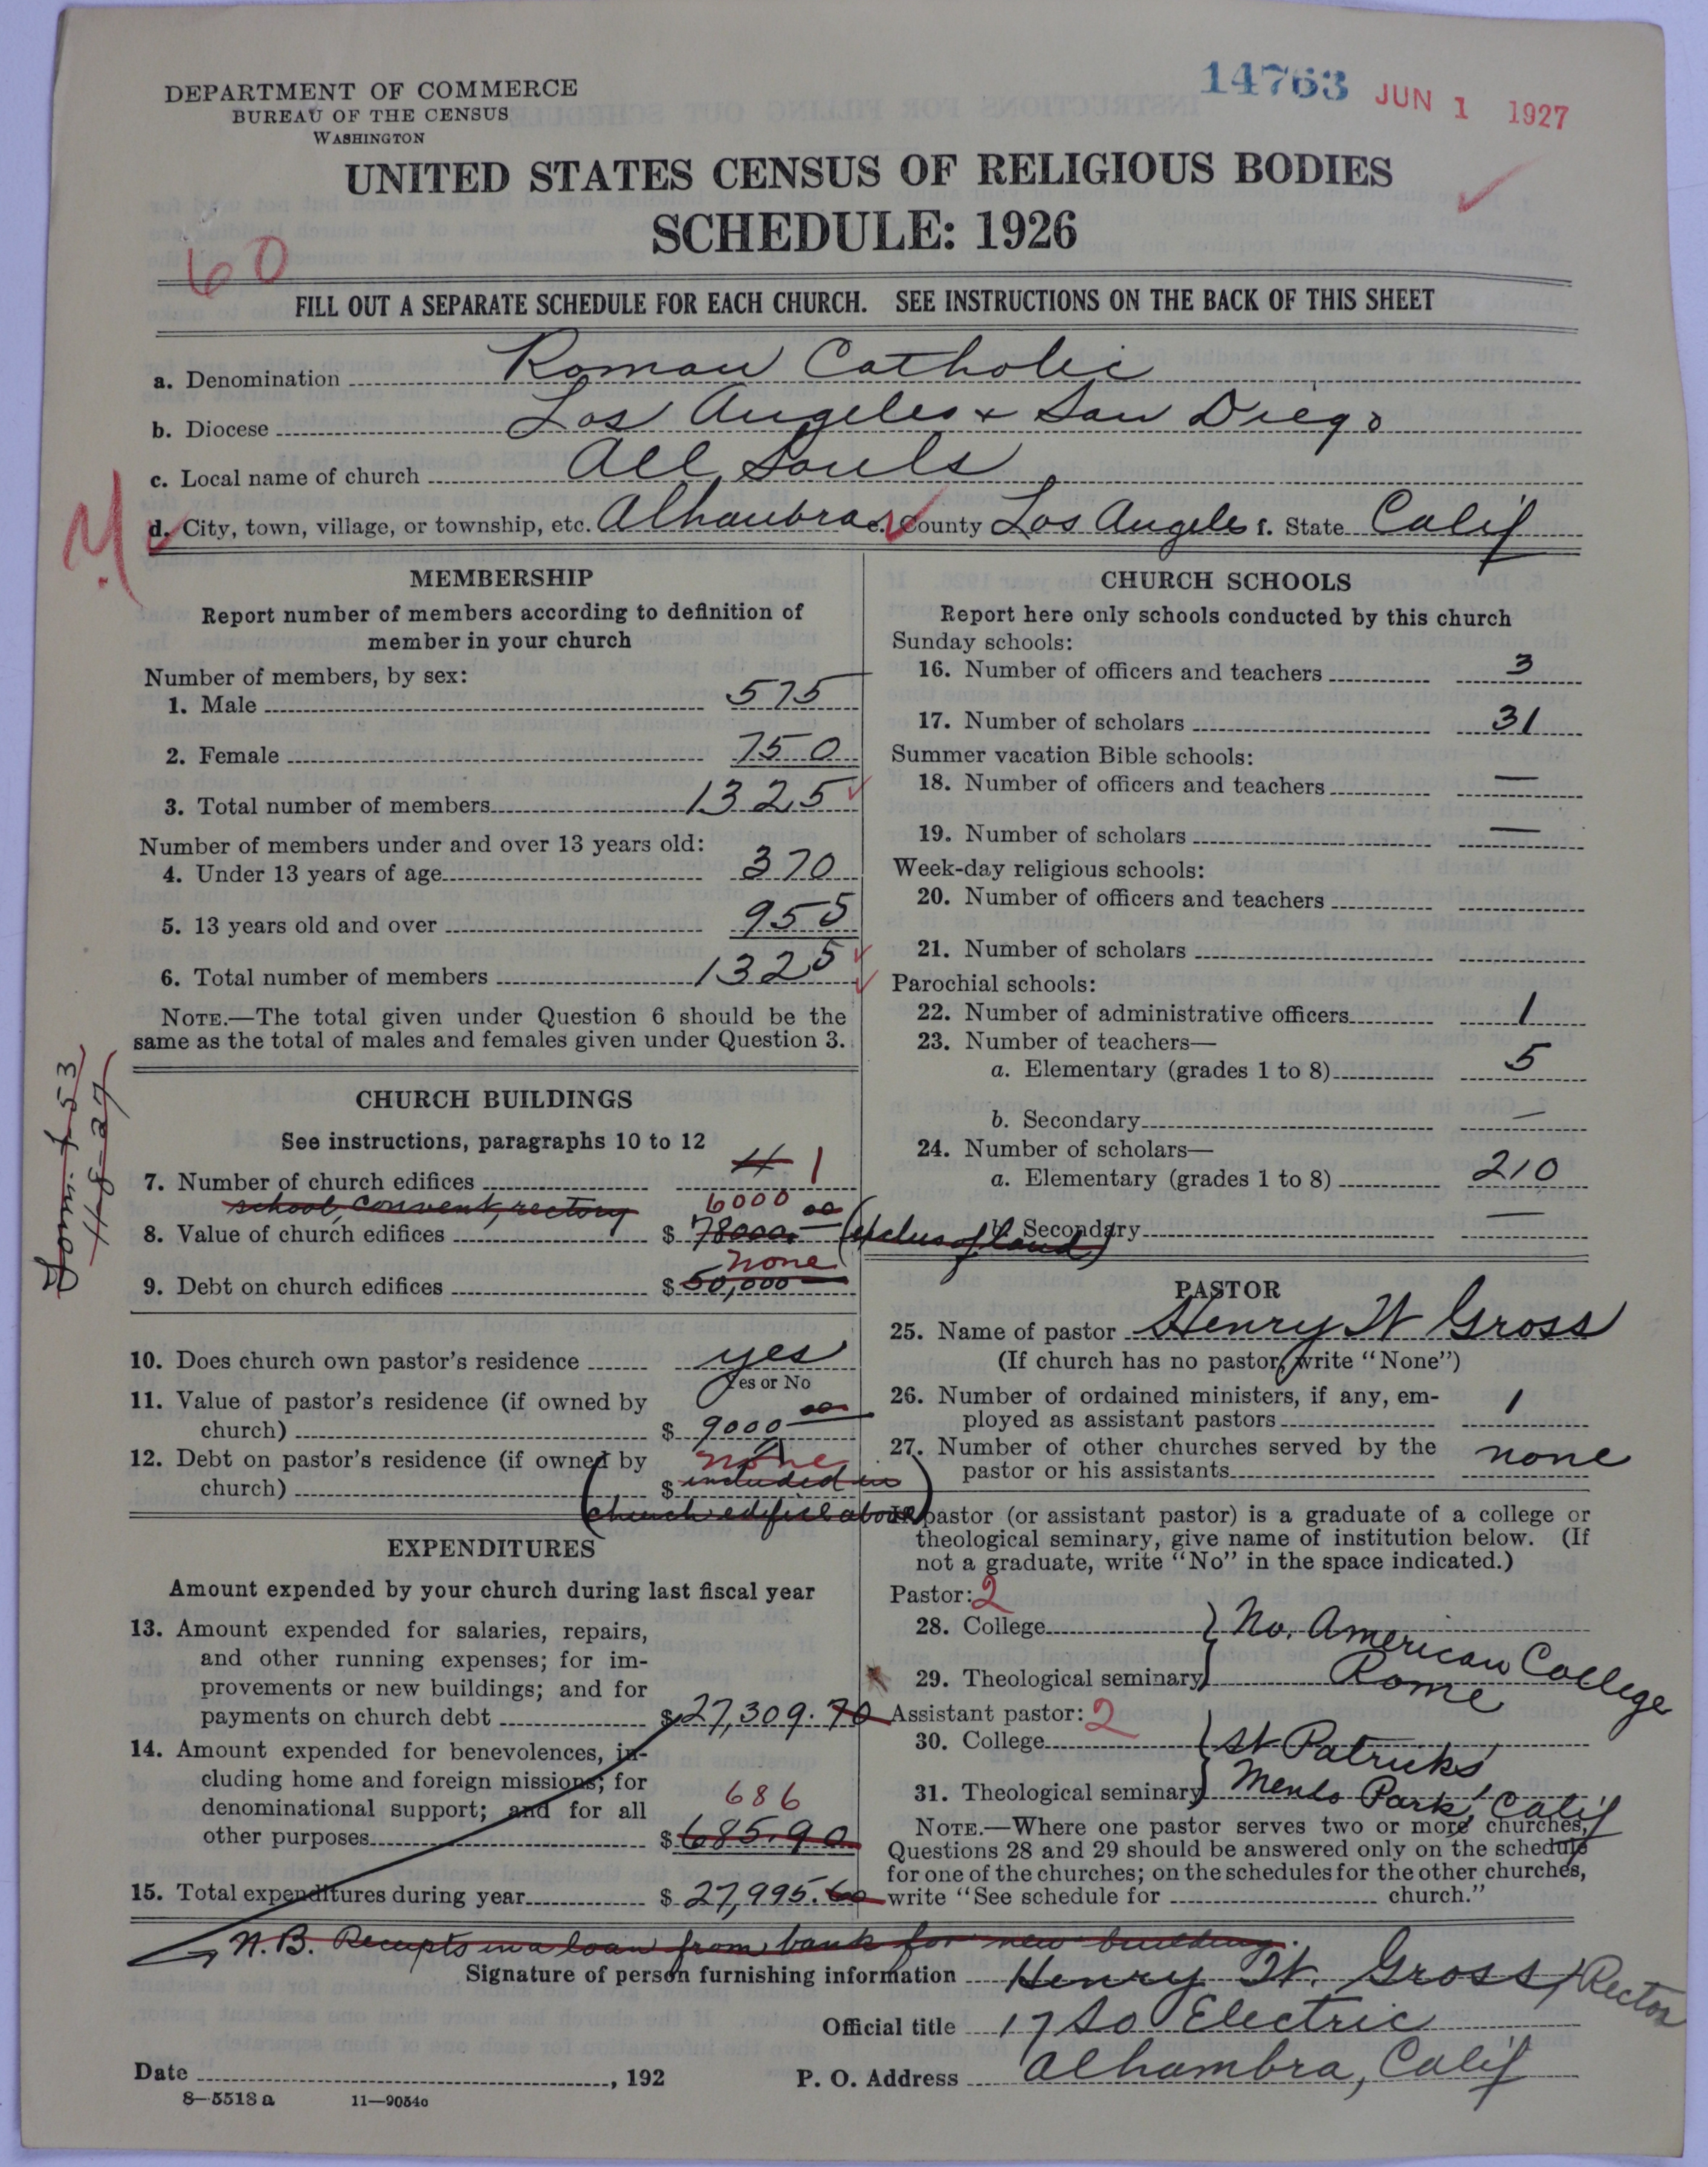 14763 JUN 1 1927
DEPARTMENT OF COMMERCE
BUREAU OF THE CENSUS
WASHINGTON
UNITED STATES CENSUS OF RELIGIOUS BODIES
SCHEDULE: 1926
60
FILL OUT A SEPARATE SCHEDULE FOR EACH CHURCH. SEE INSTRUCTIONS ON THE BACK OF THIS SHEET
a. Denomination Roman Catholic
b. Diocese Los Angeles & San Diego
c. Local name of church All Souls
d. City, town, village, or township, etc. Alhambra e. County Los Angeles f. State Calif
MEMBERSHIP
Report number of members according to definition of
member in your church
Number of members, by sex:
1. Male 575
2. Female 750
3. Total number of members 1325
Number of members under and over 13 years old:
4. Under 13 years of age 370
5. 13 years old and over 955
6. Total number of members 1325
NOTE.—The total given under Question 6 should be the
same as the total of males and females given under Question 3.
CHURCH BUILDINGS
See instructions, paragraphs 10 to 12
7. Number of church edifices 4 1
school, convent, rectory 6000
8. Value of church edifices $ 78000.00 (exclus of land)
none
9. Debt on church edifices $ 50,000
10. Does church own pastor's residence yes
Yes or No
11. Value of pastor's residence (if owned by
church) $ 9000 00
12. Debt on pastor's residence (if owned by none
church) $ included in
church edifice above)
EXPENDITURES
Amount expended by your church during last fiscal year
13. Amount expended for salaries, repairs,
and other running expenses; for im-
provements or new buildings; and for
payments on church debt $ 27,309.70
14. Amount expended for benevolences, in-
cluding home and foreign missions; for
denominational support; and for all 686
other purposes $ 685.90
15. Total expenditures during year $ 27,995.60
CHURCH SCHOOLS
Report here only schools conducted by this church
Sunday schools:
16. Number of officers and teachers 3
17. Number of scholars 31
Summer vacation Bible schools:
18. Number of officers and teachers —
19. Number of scholars —
Week-day religious schools:
20. Number of officers and teachers
21. Number of scholars
Parochial schools:
22. Number of administrative officers 1
23. Number of teachers—
a. Elementary (grades 1 to 8) 5
b. Secondary —
24. Number of scholars—
a. Elementary (grades 1 to 8) 210
b. Secondary —
PASTOR
25. Name of pastor Henry W Gross
(If church has no pastor, write "None")
26. Number of ordained ministers, if any, em-
ployed as assistant pastors 1
27. Number of other churches served by the
pastor or his assistants none
If pastor (or assistant pastor) is a graduate of a college or
theological seminary, give name of institution below. (If
not a graduate, write "No" in the space indicated.)
Pastor: 2
28. College No. American College
29. Theological seminary Rome
Assistant pastor: 2
30. College St Patricks
31. Theological seminary Menlo Park, Calif
NOTE.—Where one pastor serves two or more churches,
Questions 28 and 29 should be answered only on the schedule
for one of the churches; on the schedules for the other churches,
write "See schedule for church."
N.B. Receipts in a loan from bank for new building.
Signature of person furnishing information Henry W. Gross, Rector
Official title 17 So Electric
Date , 192 P. O. Address Alhambra, Calif
8-5518a 11—9054c